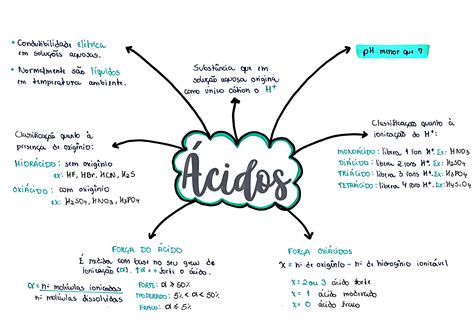 • Condutibilidade elétrica
em soluções aquosas.
• Normalmente são líquidos
em temperatura ambiente.
Substância que em
solução aquosa origina
como único cátion o H⁺
pH menor que 7
Classificação quanto à
presença de oxigênio:
HIDRÁCIDO: sem oxigênio
ex: HF, HBr, HCN, H₂S
OXIÁCIDO: com oxigênio
ex: H₂SO₄, HNO₃, H₃PO₄
Ácidos
Classificação quanto à
ionização do H⁺:
MONOÁCIDO: libera 1 íon H⁺. Ex: HNO₃
DIÁCIDO: libera 2 íons H⁺. Ex: H₂SO₄
TRIÁCIDO: libera 3 íons H⁺. Ex: H₃PO₄
TETRÁCIDO: libera 4 íons H⁺. Ex: H₄SiO₄
FORÇA DO ÁCIDO
É medida com base no seu grau de
ionização (α). ↑α = + forte o ácido.
α = nº moléculas ionizadas
nº moléculas dissolvidas
FORTE: α ≥ 50%
MODERADO: 5% < α < 50%
FRACO: α ≤ 5%
FORÇA OXIÁCIDOS
x = nº de oxigênio - nº de hidrogênio ionizável
x = 2 ou 3 ácido forte
x = 1 ácido moderado
x = 0 ácido fraco